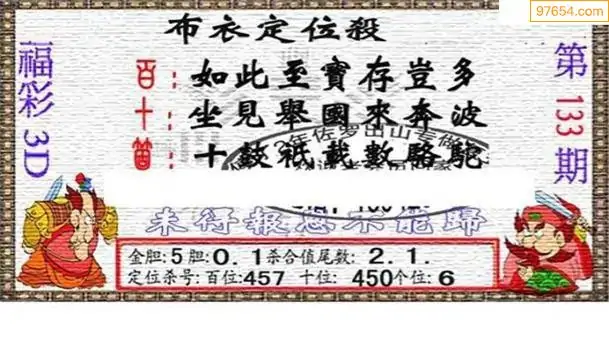 97654.com
布衣定位殺
福彩3D
第133期
百：如此至寶存豈多
十：坐見舉國來奔波
個：十鼓祗載數駱駝
未得報恩不能歸
金胆:5胆:0.1杀合值尾数:2.1.
定位杀号:百位:457 十位:450个位:6